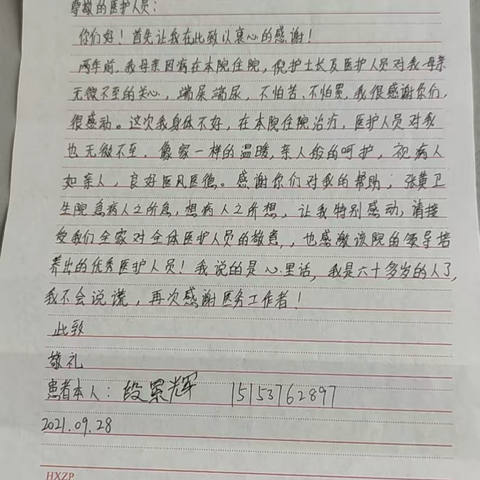 尊敬的医护人员：
你们好！首先让我在此致以衷心的感谢！
两年前，我母亲因病在本院住院，倪护士长及医护人员对我母亲
无微不至的关心，端屎端尿，不怕苦、不怕累，我很感谢你们，
很感动。这次我身体不好，在本院住院治疗，医护人员对我
也无微不至，像家一样的温暖，亲人般的呵护，视病人
如亲人，良好医风医德。感谢你们对我的帮助；张黄卫
生院急病人之所急，想病人之所想，让我特别感动，请接
受我们全家对全体医护人员的敬意，也感激该院的领导培
养出的优秀医护人员！我说的是心里话，我是六十多岁的人了，
我不会说谎，再次感谢医务工作者！
此致
敬礼
患者本人：段累辉 15153762897
2021.09.28
HXZP